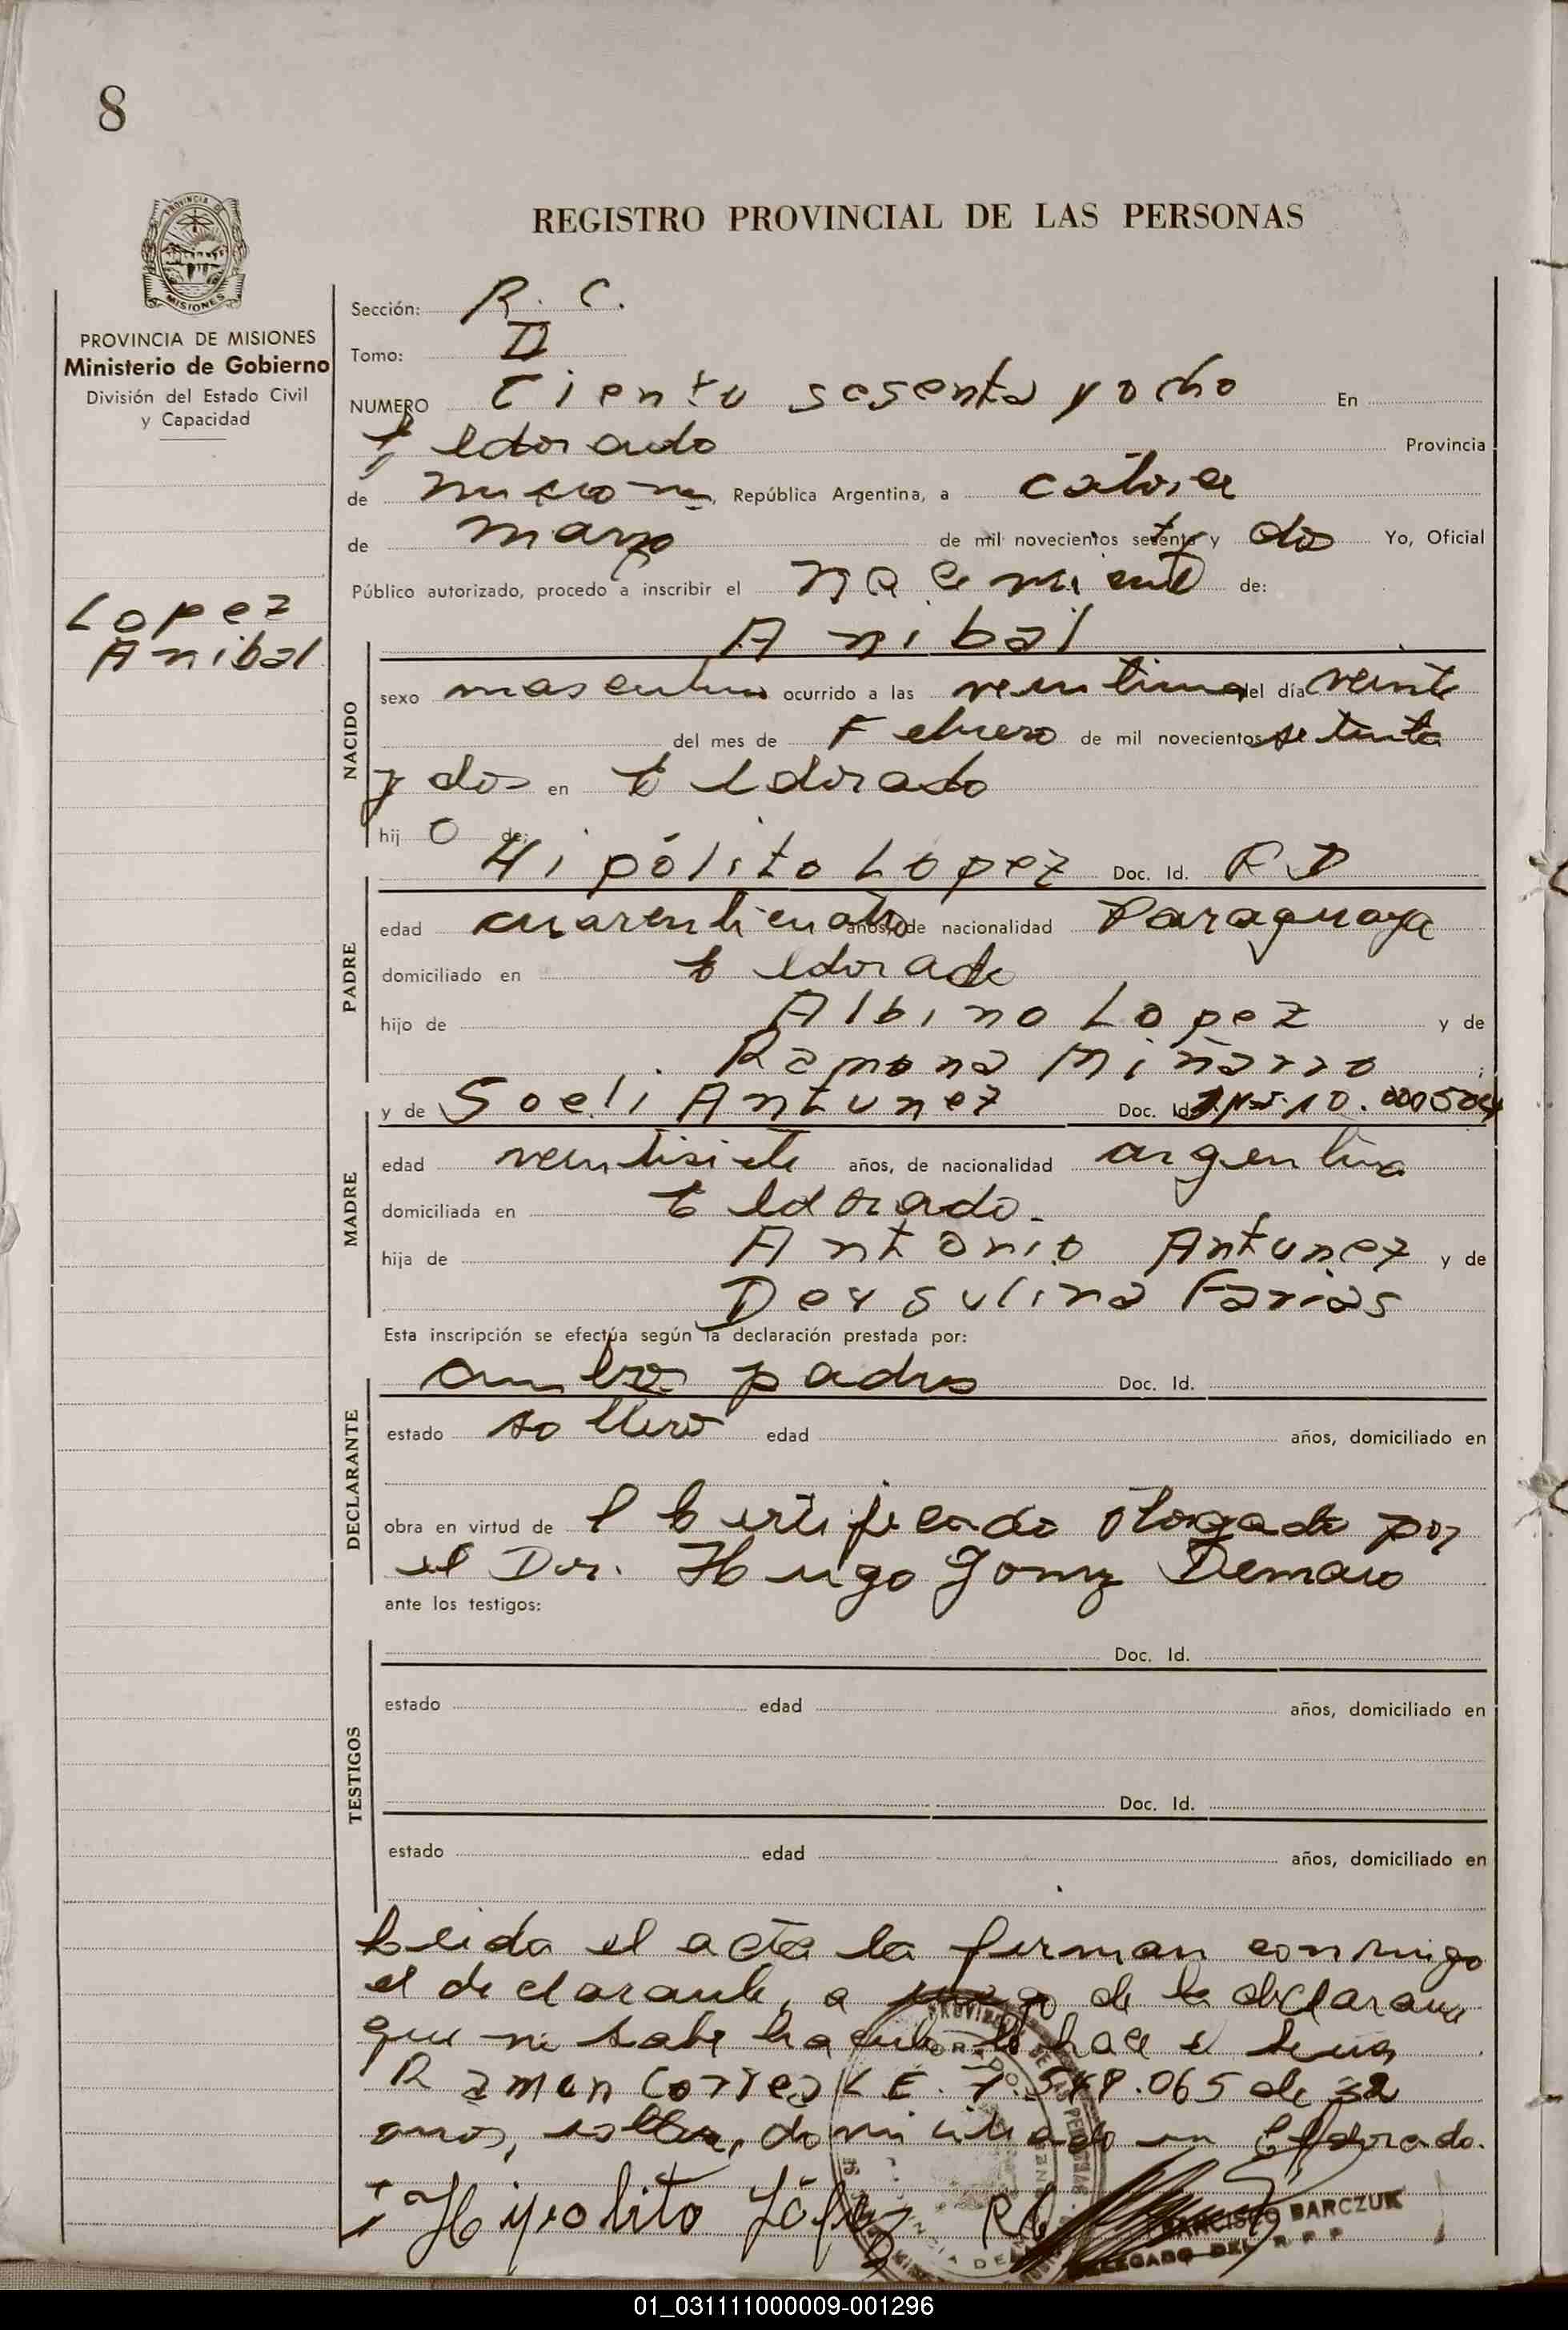 8
REGISTRO PROVINCIAL DE LAS PERSONAS
PROVINCIA DE MISIONES
Ministerio de Gobierno
División del Estado Civil
y Capacidad
Lopez
Anibal
Sección: R. C.
Tomo: II
NUMERO Ciento sesenta y ocho En
Eldorado Provincia
de Misiones, República Argentina, a catorce
de marzo de mil novecientos setenta y dos Yo, Oficial
Público autorizado, procedo a inscribir el nacimiento de:
Anibal
NACIDO
sexo masculino ocurrido a las veintiuna del día veinte
del mes de Febrero de mil novecientos setenta
y dos en Eldorado
hijo de:
Hipólito Lopez Doc. Id.
PADRE
edad años, de nacionalidad Paraguaya
domiciliado en Eldorado
hijo de Albino Lopez y de
Ramona Miñarro ;
y de Soeli Antunez Doc. Id.
MADRE
edad veintisiete años, de nacionalidad argentina
domiciliada en Eldorado.
hija de Antonio Antunez y de
Dersulina Farias
Esta inscripción se efectúa según la declaración prestada por:
ambos padres Doc. Id.
DECLARANTE
estado solteros edad años, domiciliado en
obra en virtud de el Certificado otorgado por
el Dor. Hugo Gomez Demaio
ante los testigos:
TESTIGOS
Doc. Id.
estado edad años, domiciliado en
Doc. Id.
estado edad años, domiciliado en
Leida el acta la firman conmigo
el declarante, a ruego de la declarante
que no sabe hacerlo lo hace el señor
Ramon Correa L E. 7.548.065 de 32
años, soltero, domiciliado en Eldorado.
Hipolito López
FRANCISCO BARCZUK
DELEGADO DEL R P P
01_031111000009-001296